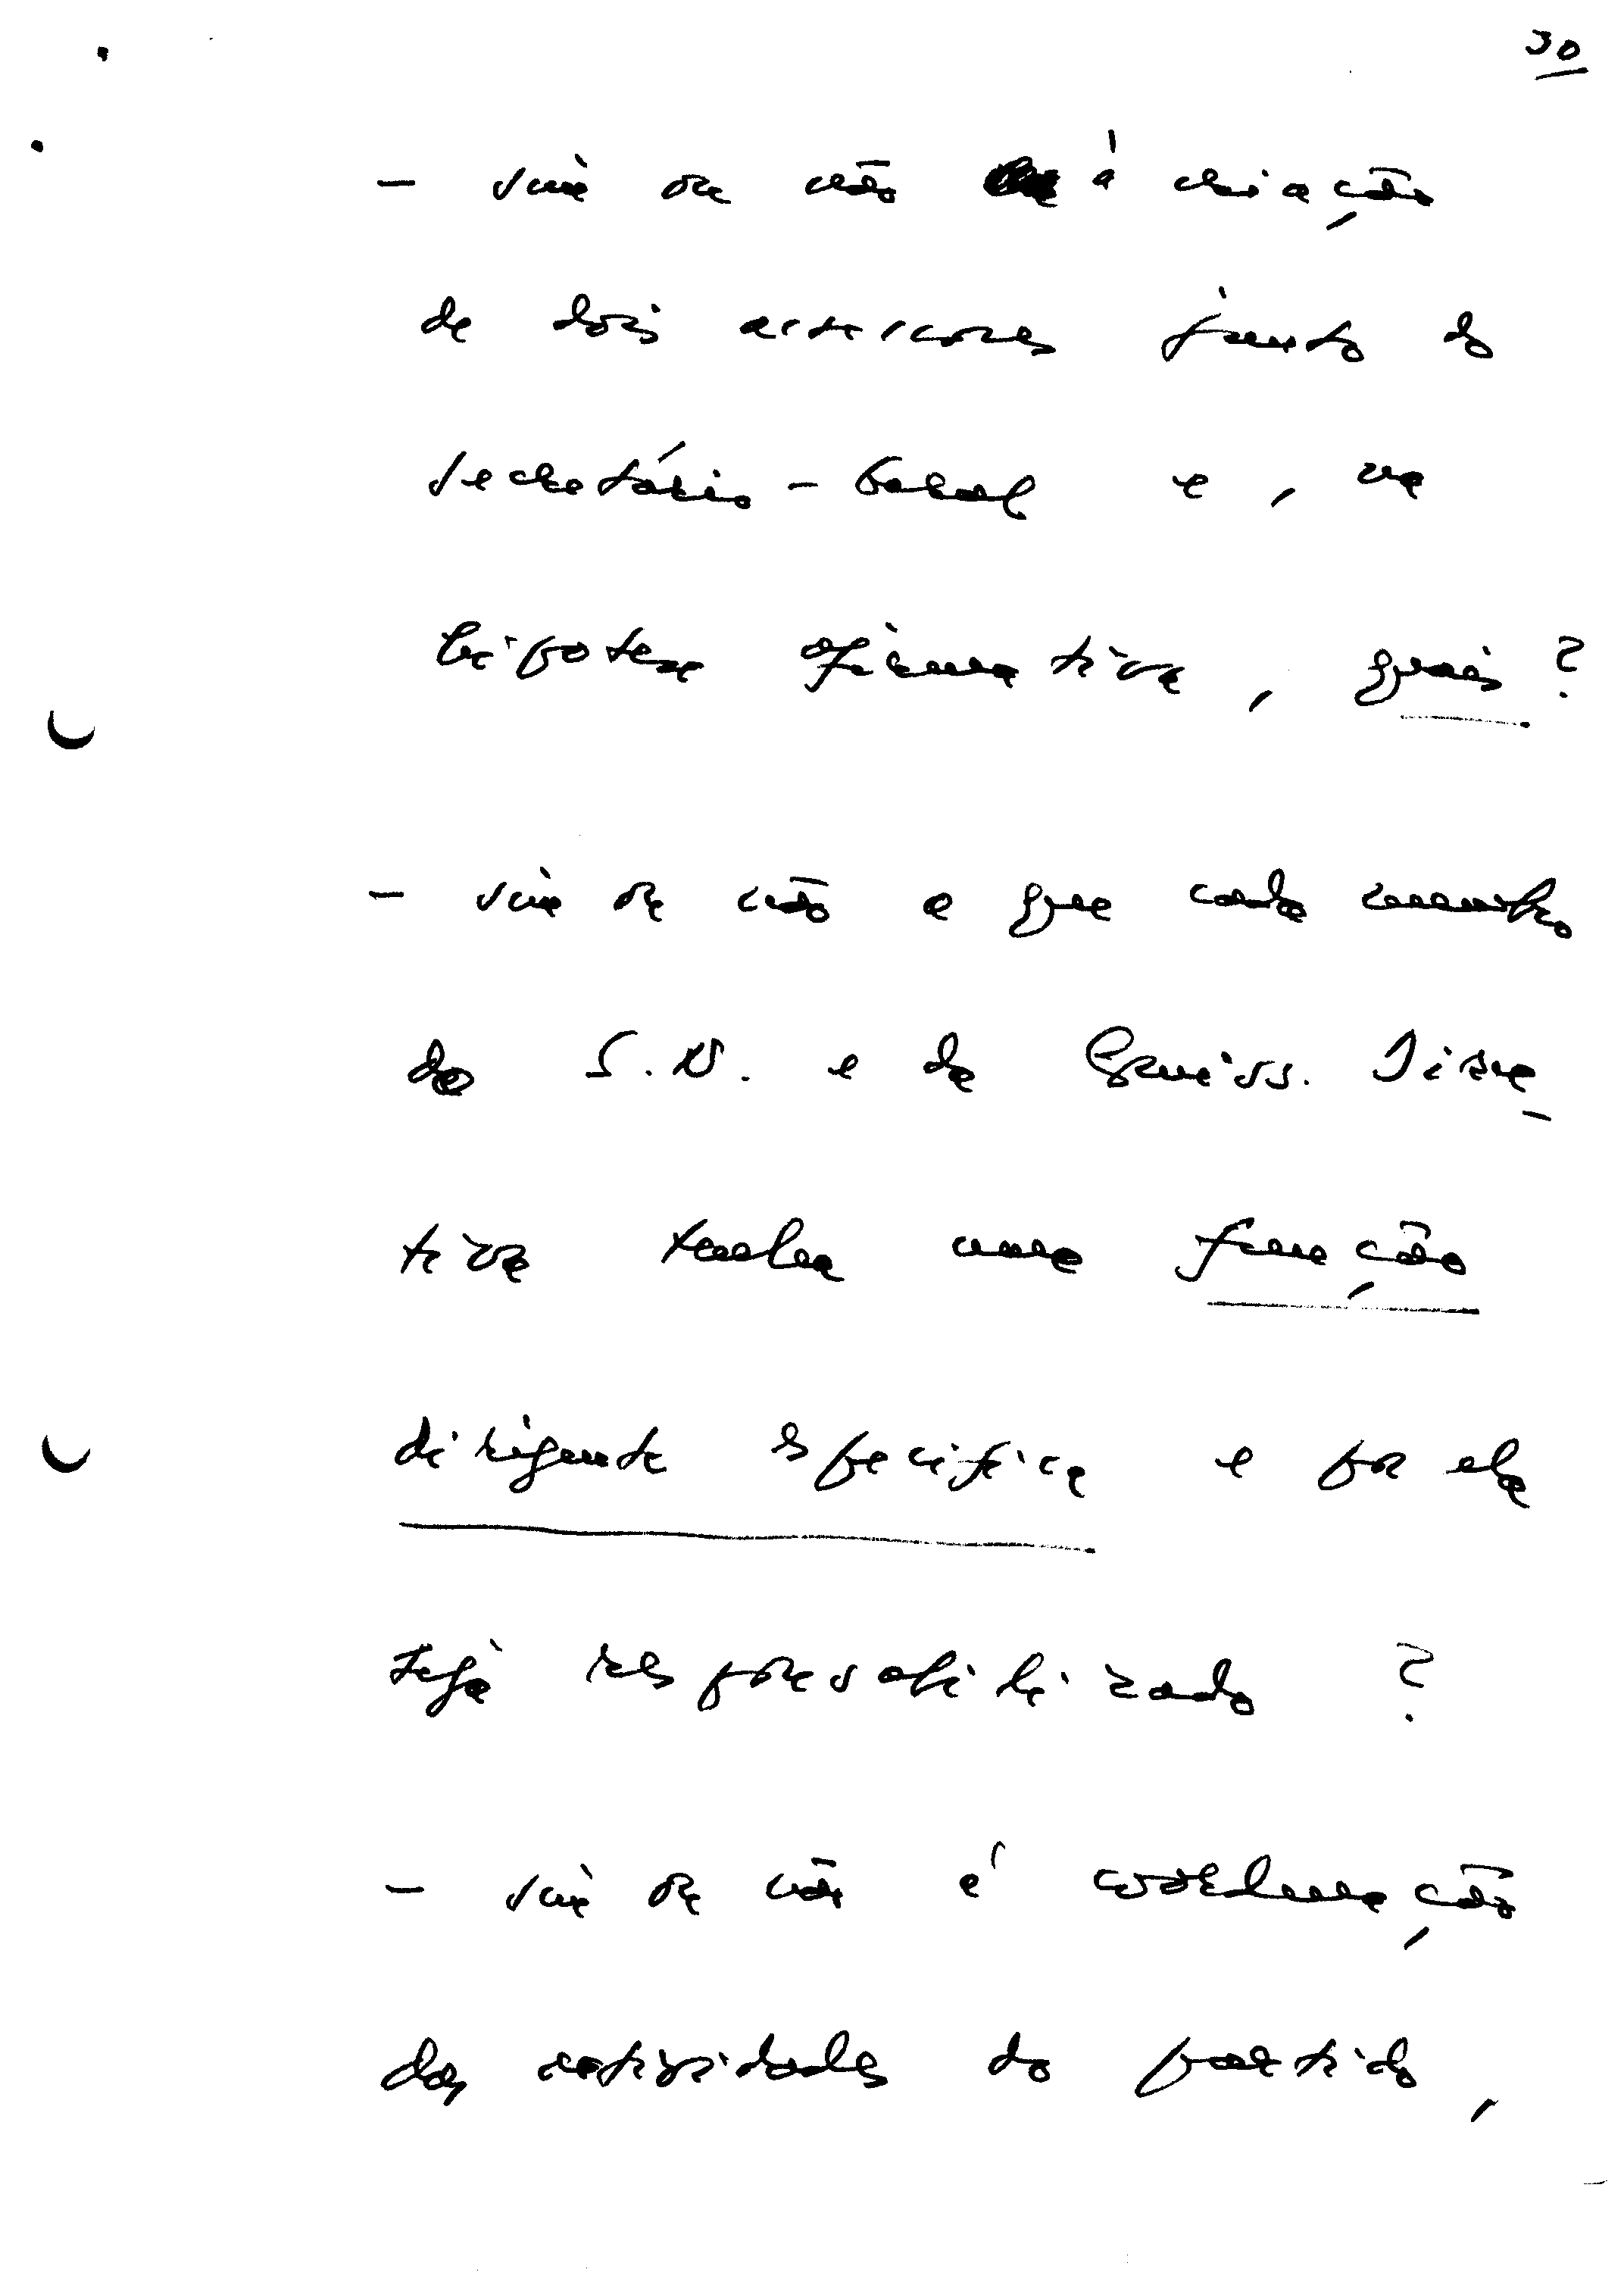 30
- sim ou não à criação
de dois assessores junto do
secretário-Geral e, na
hipótese afirmativa, quais?
- sim ou não a que cada membro
do S.N. e da Comiss. Direc-
tiva tenha uma função
dirigente específica e por ela
seja responsabilizado?
- sim ou não à coordenação
das actividades do partido,